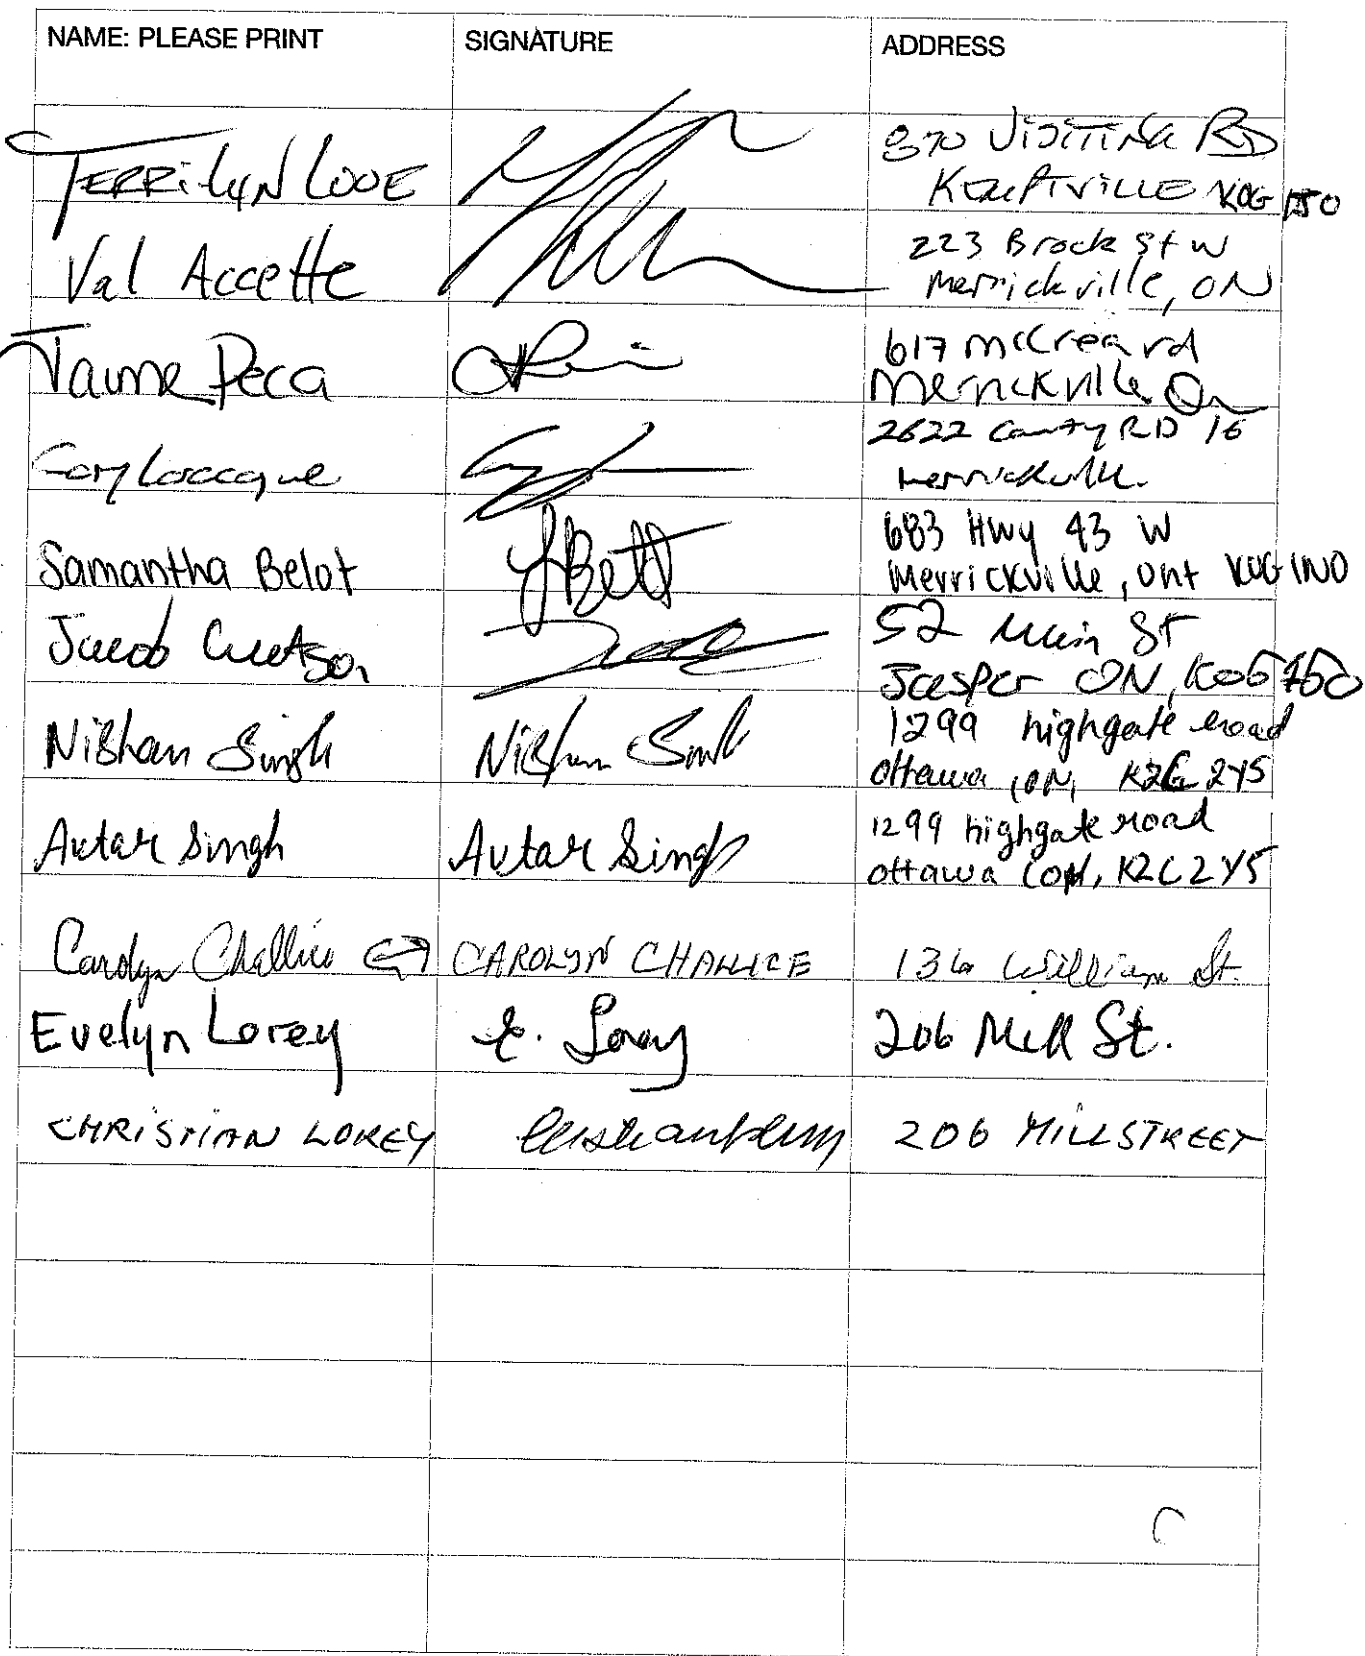 NAME: PLEASE PRINT SIGNATURE ADDRESS
TERRilyN LOVE 870 RD
KEMPTVILLE K0G 1J0
Val Accette 223 Brock St W
Merrickville, ON
Jaime Peca 617 McCrea rd
Merrickville. On
Gary Larocque 2622 County RD 16
Merrickville.
Samantha Belot SBelot 683 Hwy 43 W
Merrickville, Ont K0G 1N0
Jacob 52 Main St
Jasper ON,
Nishan Singh Nishan Singh 1299 highgate road
Ottawa, ON, K2C 2Y5
Avtar Singh Avtar Singh 1299 highgate road
Ottawa ON, K2C 2Y5
Carolyn Challice CAROLYN CHALLICE 136 William St.
Evelyn Lorey E. Lorey 206 Mill St.
CHRISTIAN LOREY Christian Lorey 206 MILL STREET